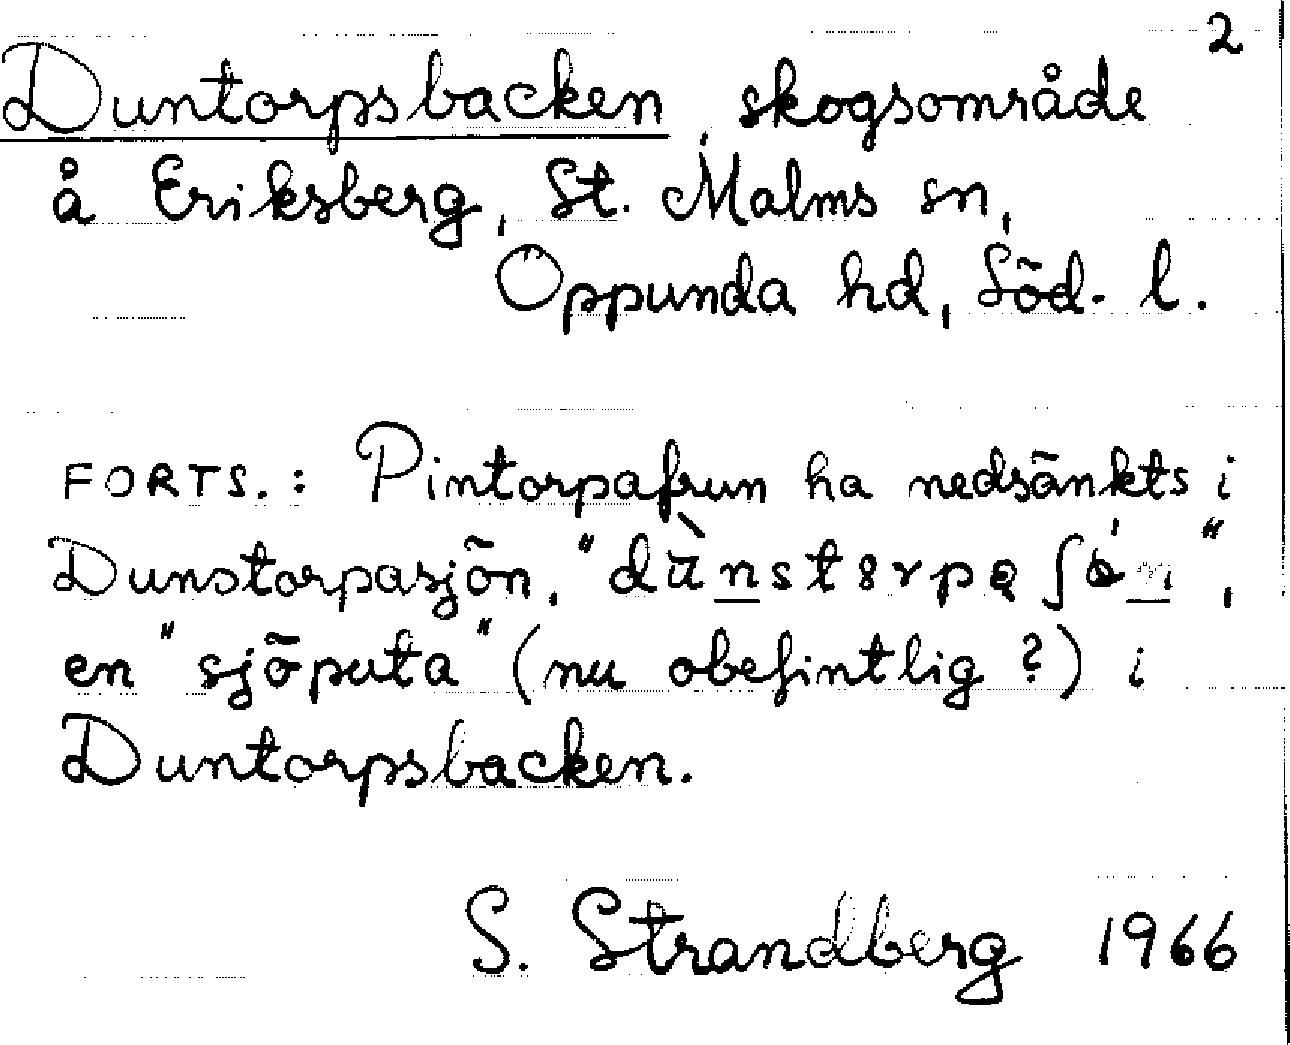 2
Duntorpsbacken, skogsområde
å Eriksberg, St. Malms sn,
Oppunda hd, Söd. l.
FORTS.: Pintorpafrun ha nedsänkts i
Dunstorpasjön,
en "sjöputa" (nu obefintlig?) i
Duntorpsbacken.
S. Strandberg 1966